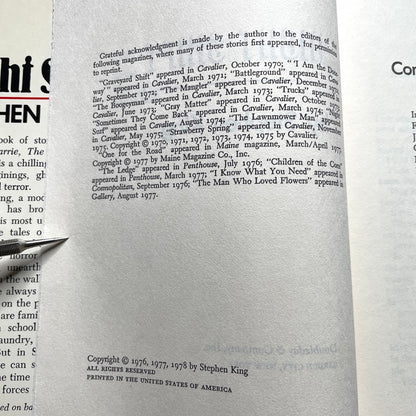 ht S
HEN
ook of sto
arrie, The
is a chilling
inings, gh
d terror.
ng, a moo
has bro
is most u
e tales o
horror
unearth
the wal
e always
on the p
are famil
a school
aundry,
But in S
e can s
he time
for
ed on ba
Grateful acknowledgment is made by the author to the editors of the
following magazines, where many of these stories first appeared, for permission
to reprint.
"Graveyard Shift" appeared in Cavalier, October 1970; "I Am the Door-
way" appeared in Cavalier, March 1971; "Battleground" appeared in Cava-
lier, September 1972; "The Mangler" appeared in Cavalier, December 1972;
"The Boogeyman" appeared in Cavalier, March 1973; "Trucks" appeared in
Cavalier, June 1973; "Gray Matter" appeared in Cavalier, October 1973;
"Sometimes They Come Back" appeared in Cavalier, March 1974; "Night
Surf" appeared in Cavalier, August 1974; "The Lawnmower Man" appeared
in Cavalier, May 1975; "Strawberry Spring" appeared in Cavalier, November
1975. Copyright © 1970, 1971, 1972, 1973, 1974, 1975 by Cavalier.
"One for the Road" appeared in Maine magazine, March/April 1977.
Copyright © 1977 by Maine Magazine Co., Inc.
"The Ledge" appeared in Penthouse, July 1976; "Children of the Corn"
appeared in Penthouse, March 1977; "I Know What You Need" appeared in
Cosmopolitan, September 1976; "The Man Who Loved Flowers" appeared in
Gallery, August 1977.
Copyright © 1976, 1977, 1978 by Stephen King
ALL RIGHTS RESERVED
PRINTED IN THE UNITED STATES OF AMERICA
Con